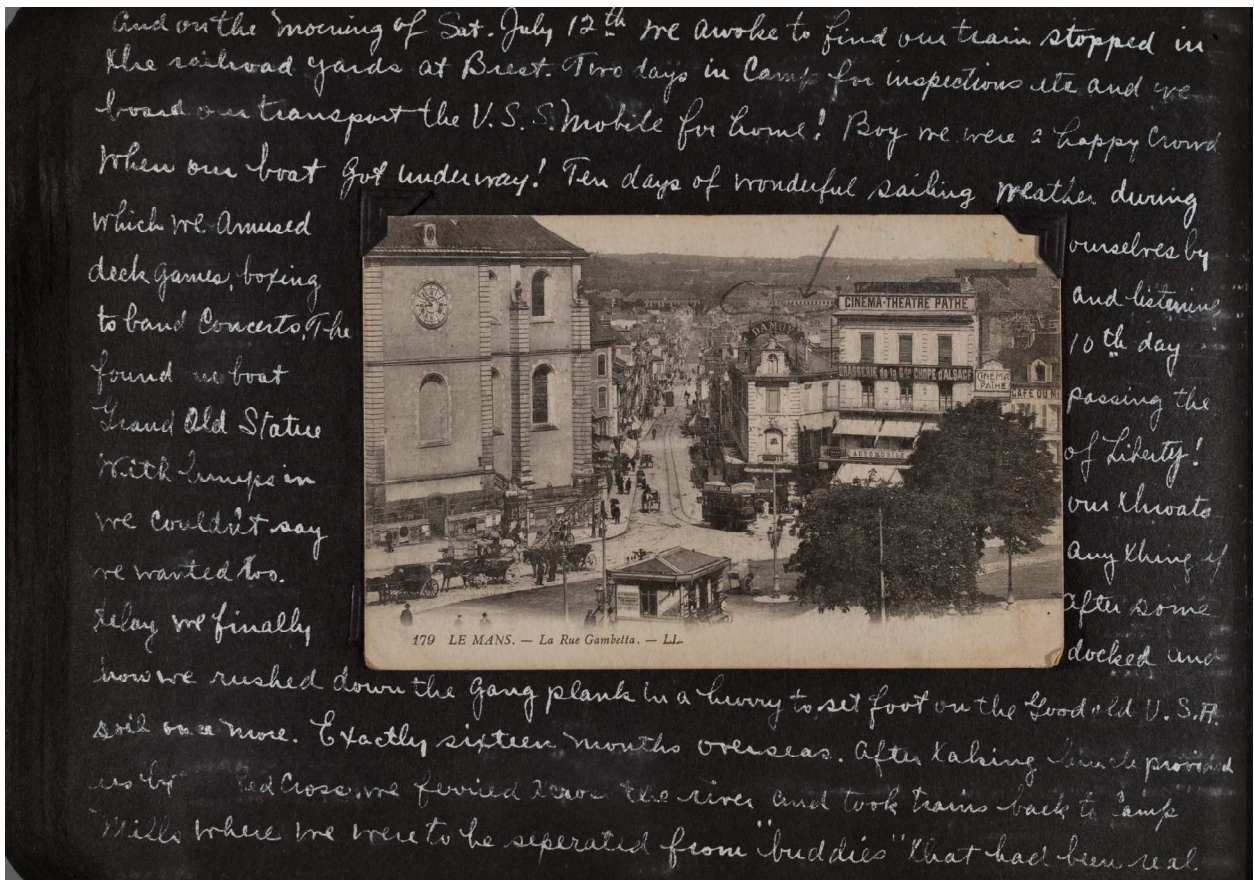 And on the morning of Sat. July 12th we awoke to find our train stopped in
the railroad yards at Brest. Two days in Camp for inspections etc and we
board our transport the U.S.S. Mobile for home! Boy we were a happy Crowd
When our boat Got underway! Ten days of wonderful sailing weather during
which we Amused ourselves by
deck games, boxing and listening
to band Concerts. The 10th day
found boat passing the
Grand Old Statue of Liberty!
With lumps in our throats
we couldn't say any thing if
we wanted too. After some
delay we finally docked and
how we rushed down the gang plank in a hurry to set foot on the Good old U.S.A.
soil once more. Exactly sixteen months overseas. After provided
us by Red Cross, we ferried the river and took trains back to Camp
Mills where we were to be seperated from "buddies" that had been real
DAMOY
CINEMA-THEATRE PATHE
BRASSERIE de la Gde CHOPE d'ALSACE
CINEMA
PATHE
CAFE DU
AUTOMOBILE
179 LE MANS. — La Rue Gambetta. — LL.